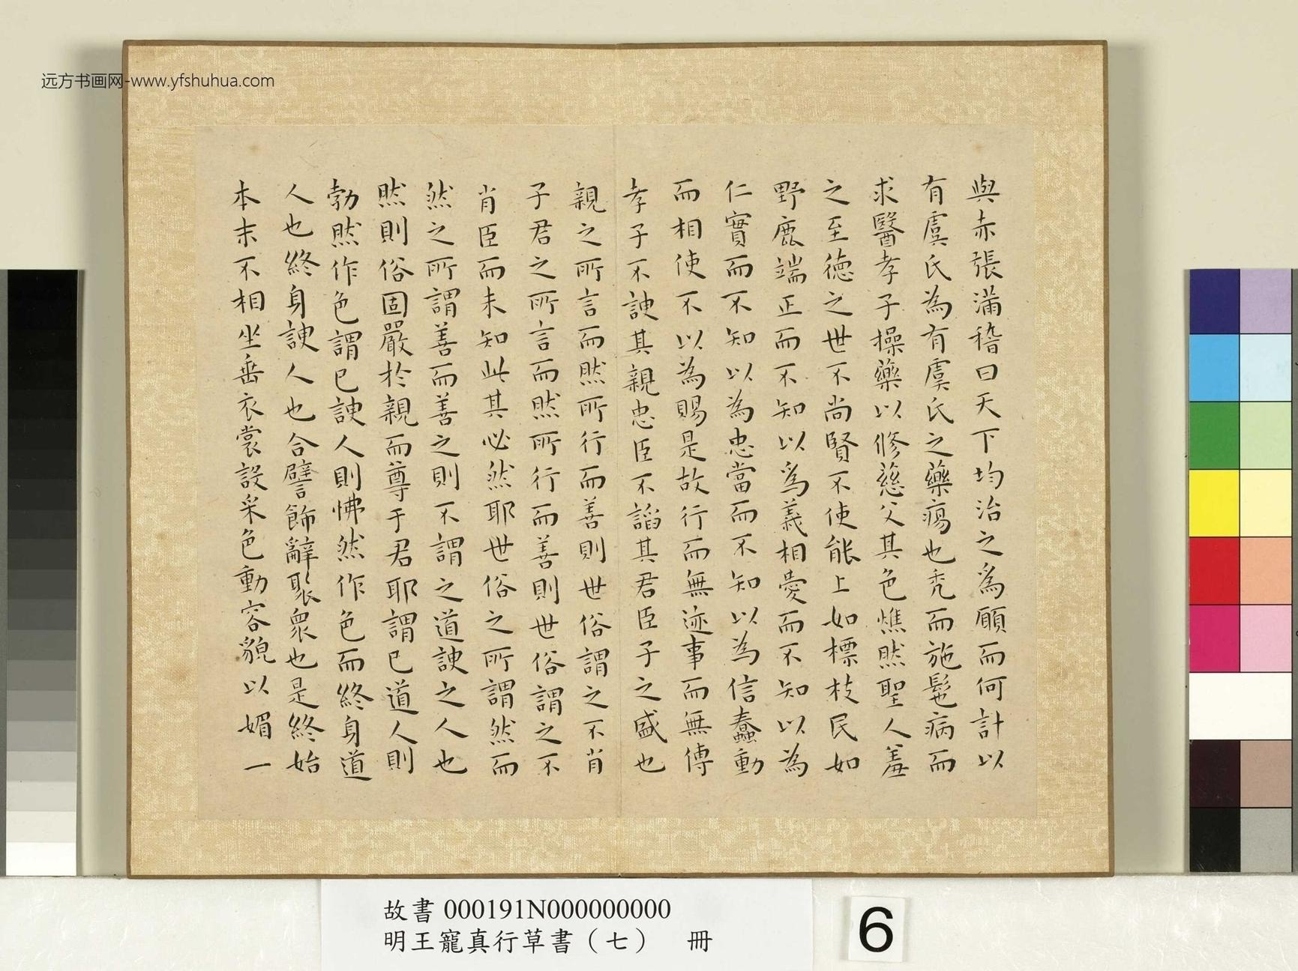 远方书画网-www.yfshuhua.com
與赤張滿稽曰天下均治之為願而何計以
有虞氏為有虞氏之藥瘍也禿而施髢病而
求醫孝子操藥以修慈父其色燋然聖人羞
之至德之世不尚賢不使能上如標枝民如
野鹿端正而不知以為義相愛而不知以為
仁實而不知以為忠當而不知以為信蠢動
而相使不以為賜是故行而無迹事而無傳
孝子不諛其親忠臣不諂其君臣子之盛也
親之所言而然所行而善則世俗謂之不肖
子君之所言而然所行而善則世俗謂之不
肖臣而未知此其必然耶世俗之所謂然而
然之所謂善而善之則不謂之道諛之人也
然則俗固嚴於親而尊于君耶謂已道人則
勃然作色謂已諛人則怫然作色而終身道
人也終身諛人也合譬飾辭聚眾也是終始
本末不相坐垂衣裳設采色動容貌以媚一
故書 000191N000000000
明王寵真行草書（七） 冊
6